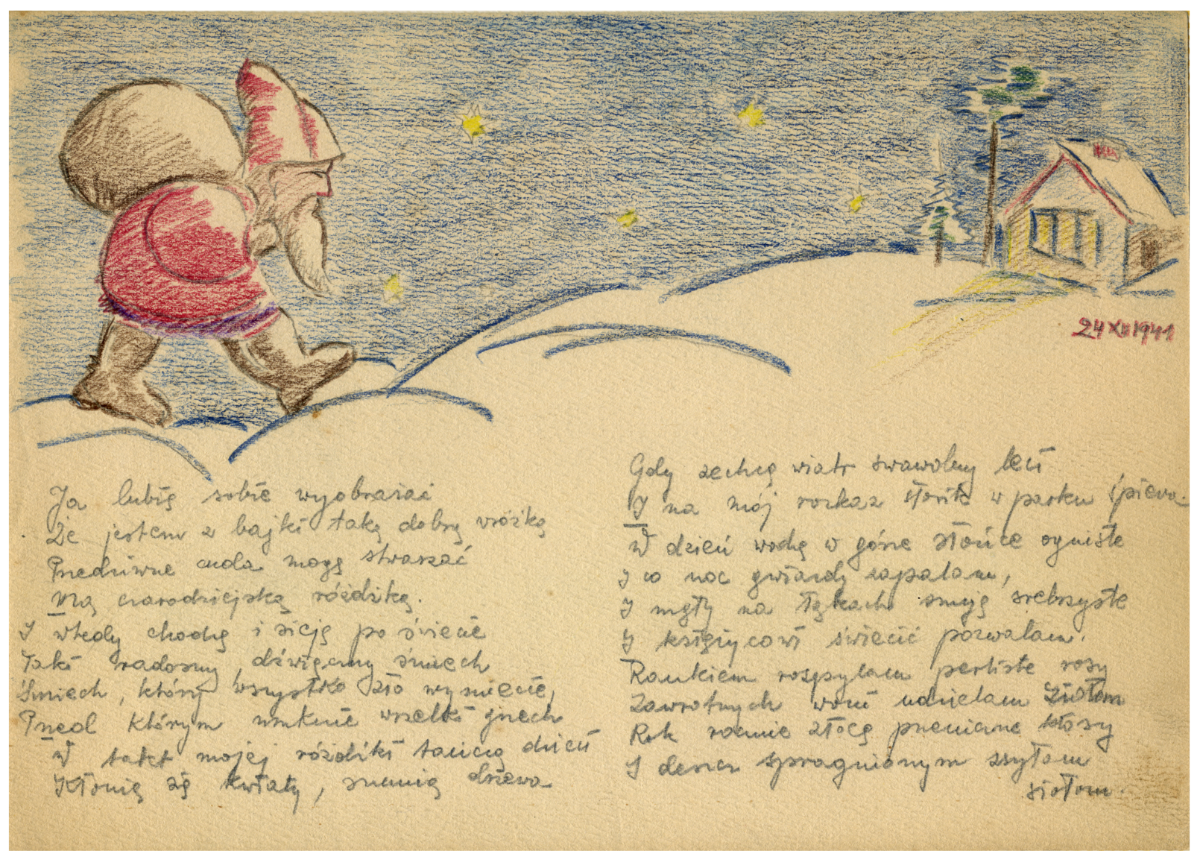 24 XII 1941
Ja lubię sobie wyobrażać
Że jestem z bajki taką dobrą wróżką
Przedziwne cuda mogę stwarzać
Mą czarodziejską różdżką.
I wtedy chodzę i sieję po świecie
Taki radosny, dźwięczny śmiech
Śmiech, który wszystko zło wymiecie,
Przed którym umknie wszelki grzech
W takt mojej różdżki tańczą dzieci
Kłonią się kwiaty, szumią drzewa
Gdy zechcę wiatr swawolny leci
I na mój rozkaz słowik w parku śpiewa
W dzień wodzę w górze słońce ogniste
I co noc gwiazdy zapalam,
I mgły na łąkach snuję srebrzyste
I księżycowi świecić pozwalam.
Rankiem rozpylam perliste rosy
Zawrotnych woni udzielam ziołom
Rok rocznie złocę pszeniczne kłosy
I deszcz spragnionym zsyłam
siołom.